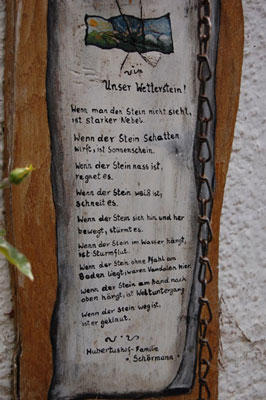 Unser Wetterstein!
Wenn man den Stein nicht sieht,
ist starker Nebel.
Wenn der Stein Schatten
wirft, ist Sonnenschein.
Wenn der Stein nass ist,
regnet es.
Wenn der Stein weiß ist,
schneit es.
Wenn der Stein sich hin und her
bewegt, stürmt es.
Wenn der Stein im Wasser hängt,
ist Sturmflut.
Wenn der Stein ohne Pfahl am
Boden liegt, waren Vandalen hier.
Wenn der Stein am Band nach
oben hängt, ist Weltuntergang.
Wenn der Stein weg ist,
ist er geklaut.
Hubertushof-Familie
Schörmann